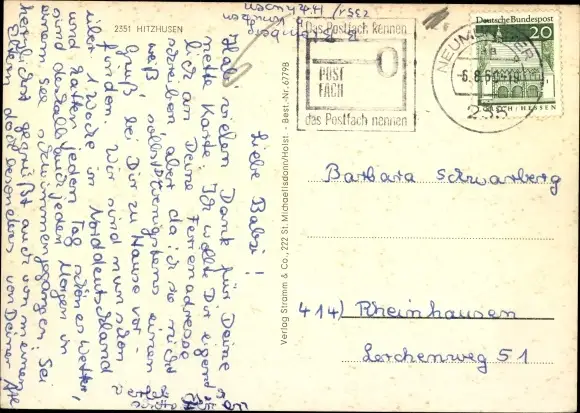 2351 HITZHUSEN
Liebe Babsi!
Hab' vielen Dank für Deine
nette Karte. Ich wollte Dir eigent-
lich an Deine Ferienadresse
schreiben aber da ich sie nicht
weiß, sollst Du wenigstens einen
Gruß bei Dir zu Hause vor-
finden. Wir sind nun schon
über 1 Woche in Norddeutschland
und hatten jeden Tag schönes Wetter,
sind deshalb auch jeden Morgen in
einem See schwimmen gegangen. Sei
herzlichst gegrüßt auch von meinen
Eltern, doch besonders von Deiner
Verlag Stramm & Co., 222 St. Michaelisdonn/Holst. - Best.-Nr. 67798
Das Postfach kennen
POST
FACH
das Postfach nennen
NEUMÜNSTER
235
Deutsche Bundespost
20
Barbara Schwarberg
414) Rheinhausen
Lerchenweg 51